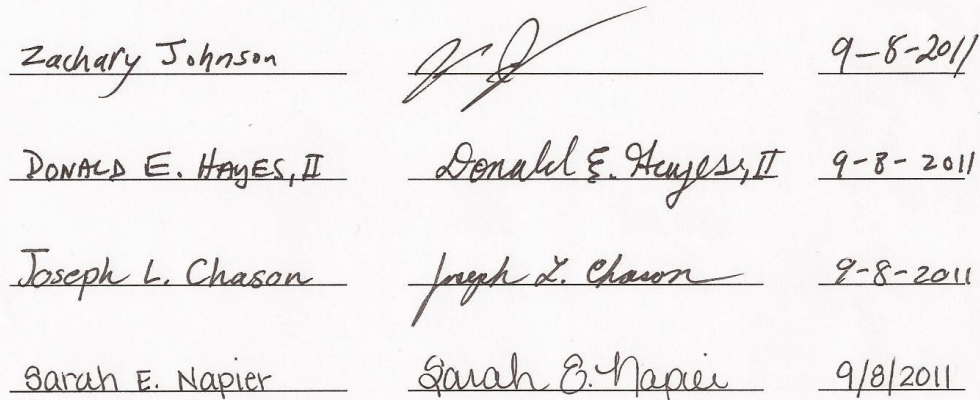 Zachary Johnson ZJ 9-8-2011
DONALD E. HAYES, II Donald E. Hayes, II 9-8-2011
Joseph L. Chason Joseph L. Chason 9-8-2011
Sarah E. Napier Sarah E. Napier 9/8/2011